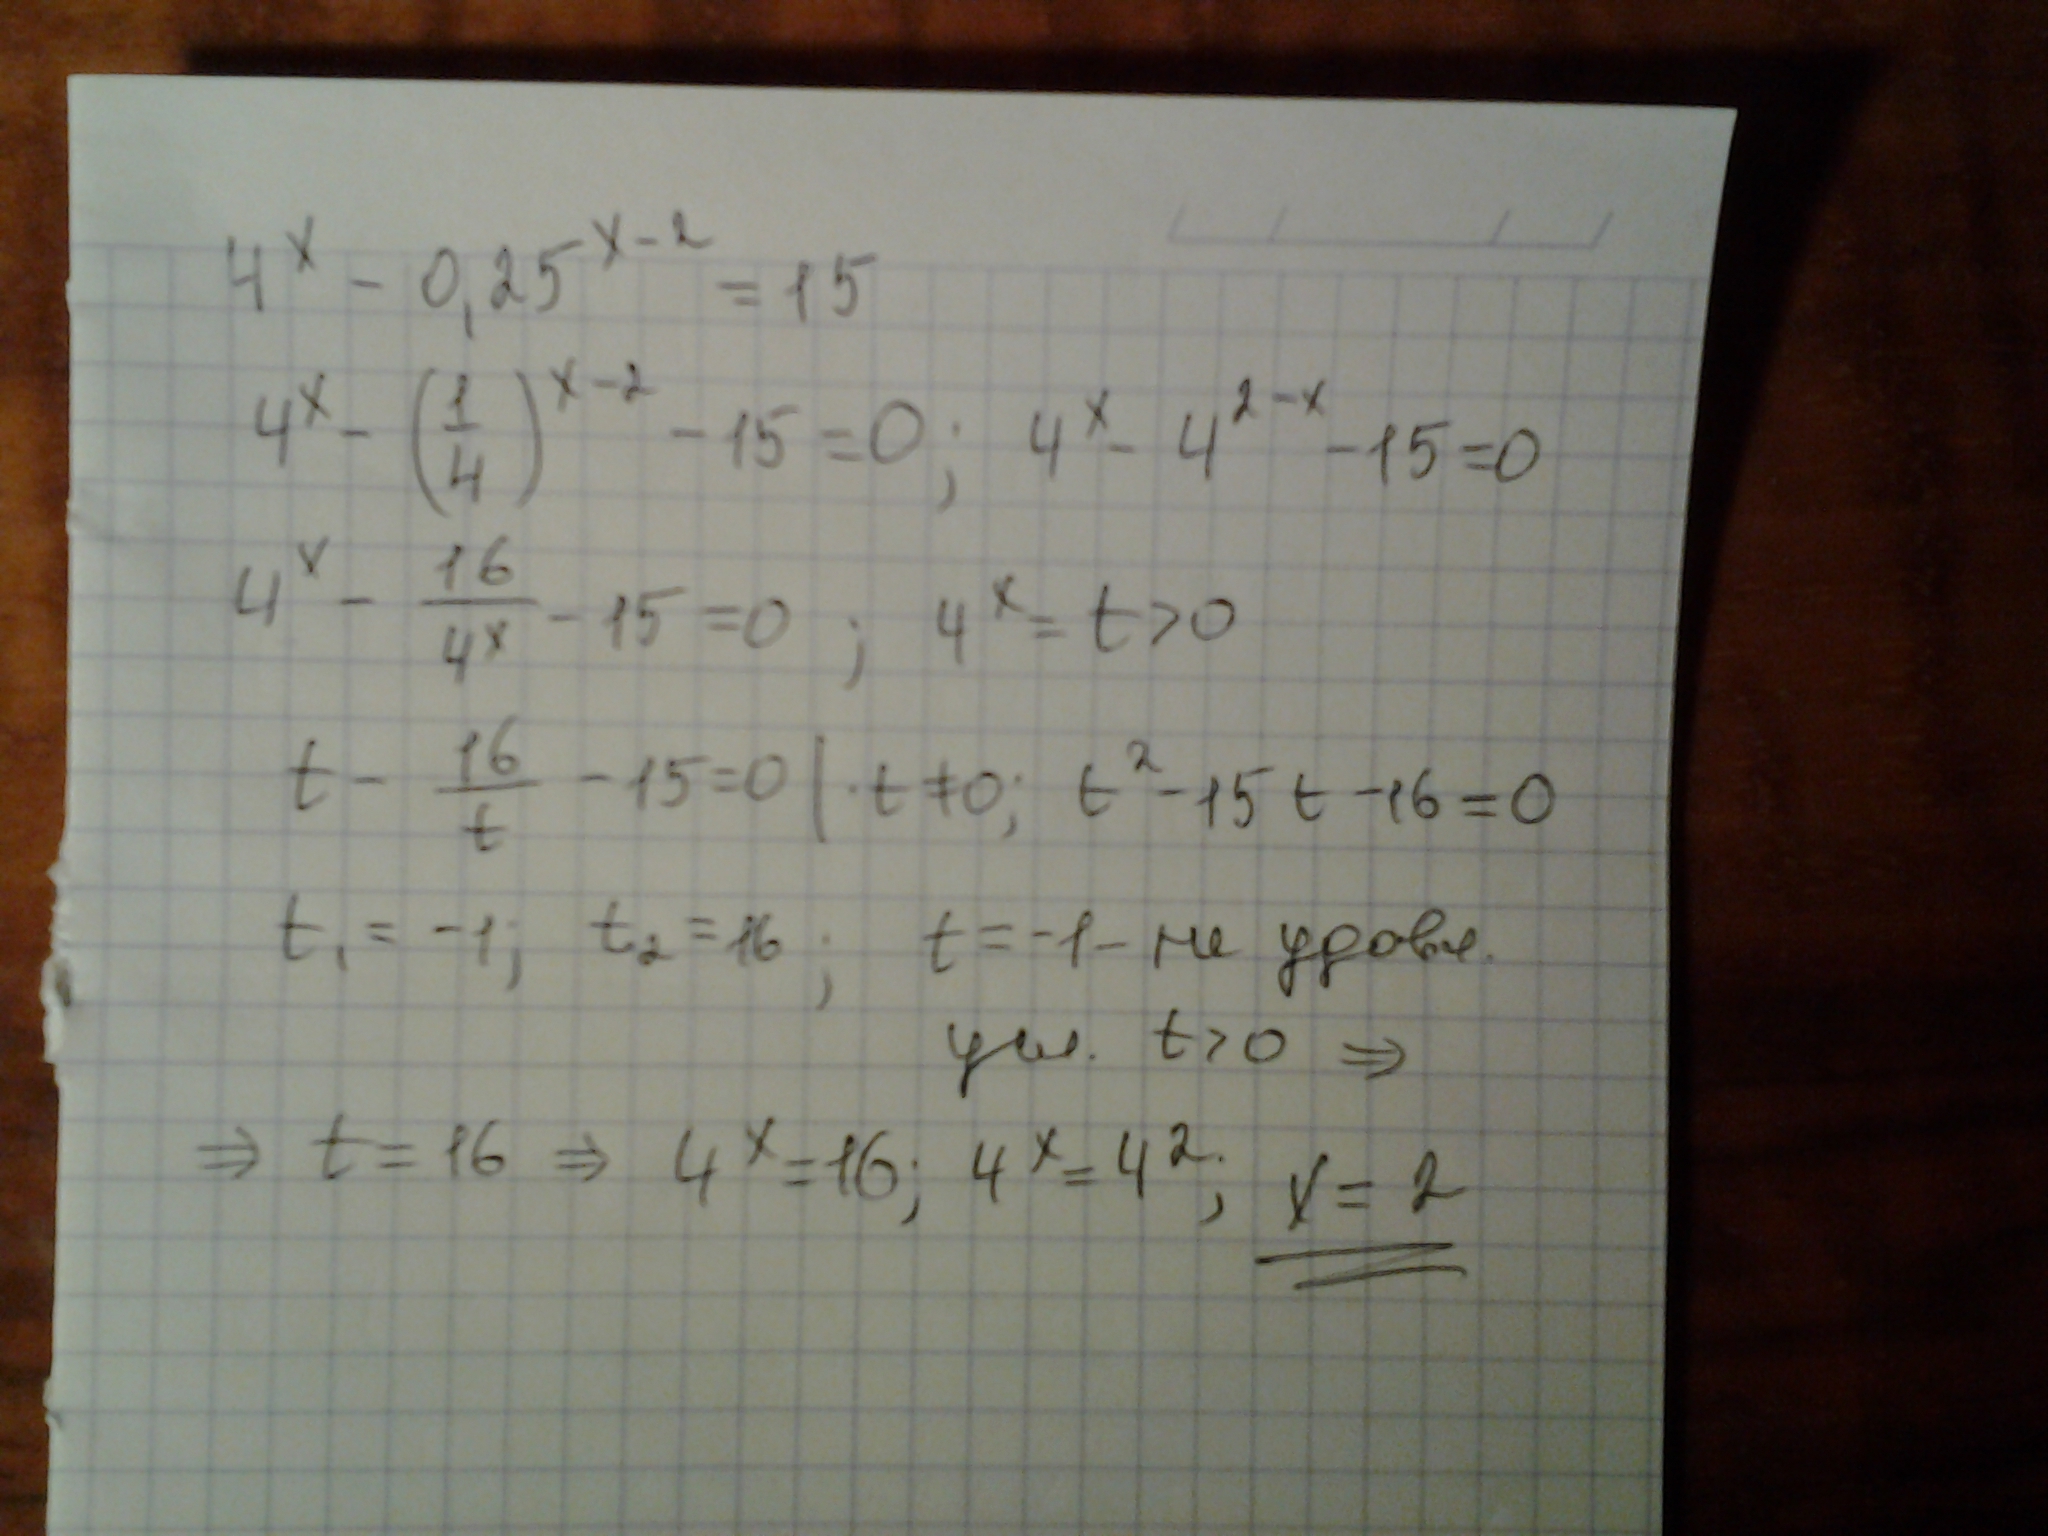 4ˣ - 0,25ˣ⁻² = 15
4ˣ - (1/4)ˣ⁻² - 15 = 0; 4ˣ - 4²⁻ˣ - 15 = 0
4ˣ - 16/4ˣ - 15 = 0; 4ˣ = t > 0
t - 16/t - 15 = 0 | · t ≠ 0; t² - 15t - 16 = 0
t₁ = -1; t₂ = 16; t = -1 - не удовл.
усл. t > 0 ⇒
⇒ t = 16 ⇒ 4ˣ = 16; 4ˣ = 4²; x = 2